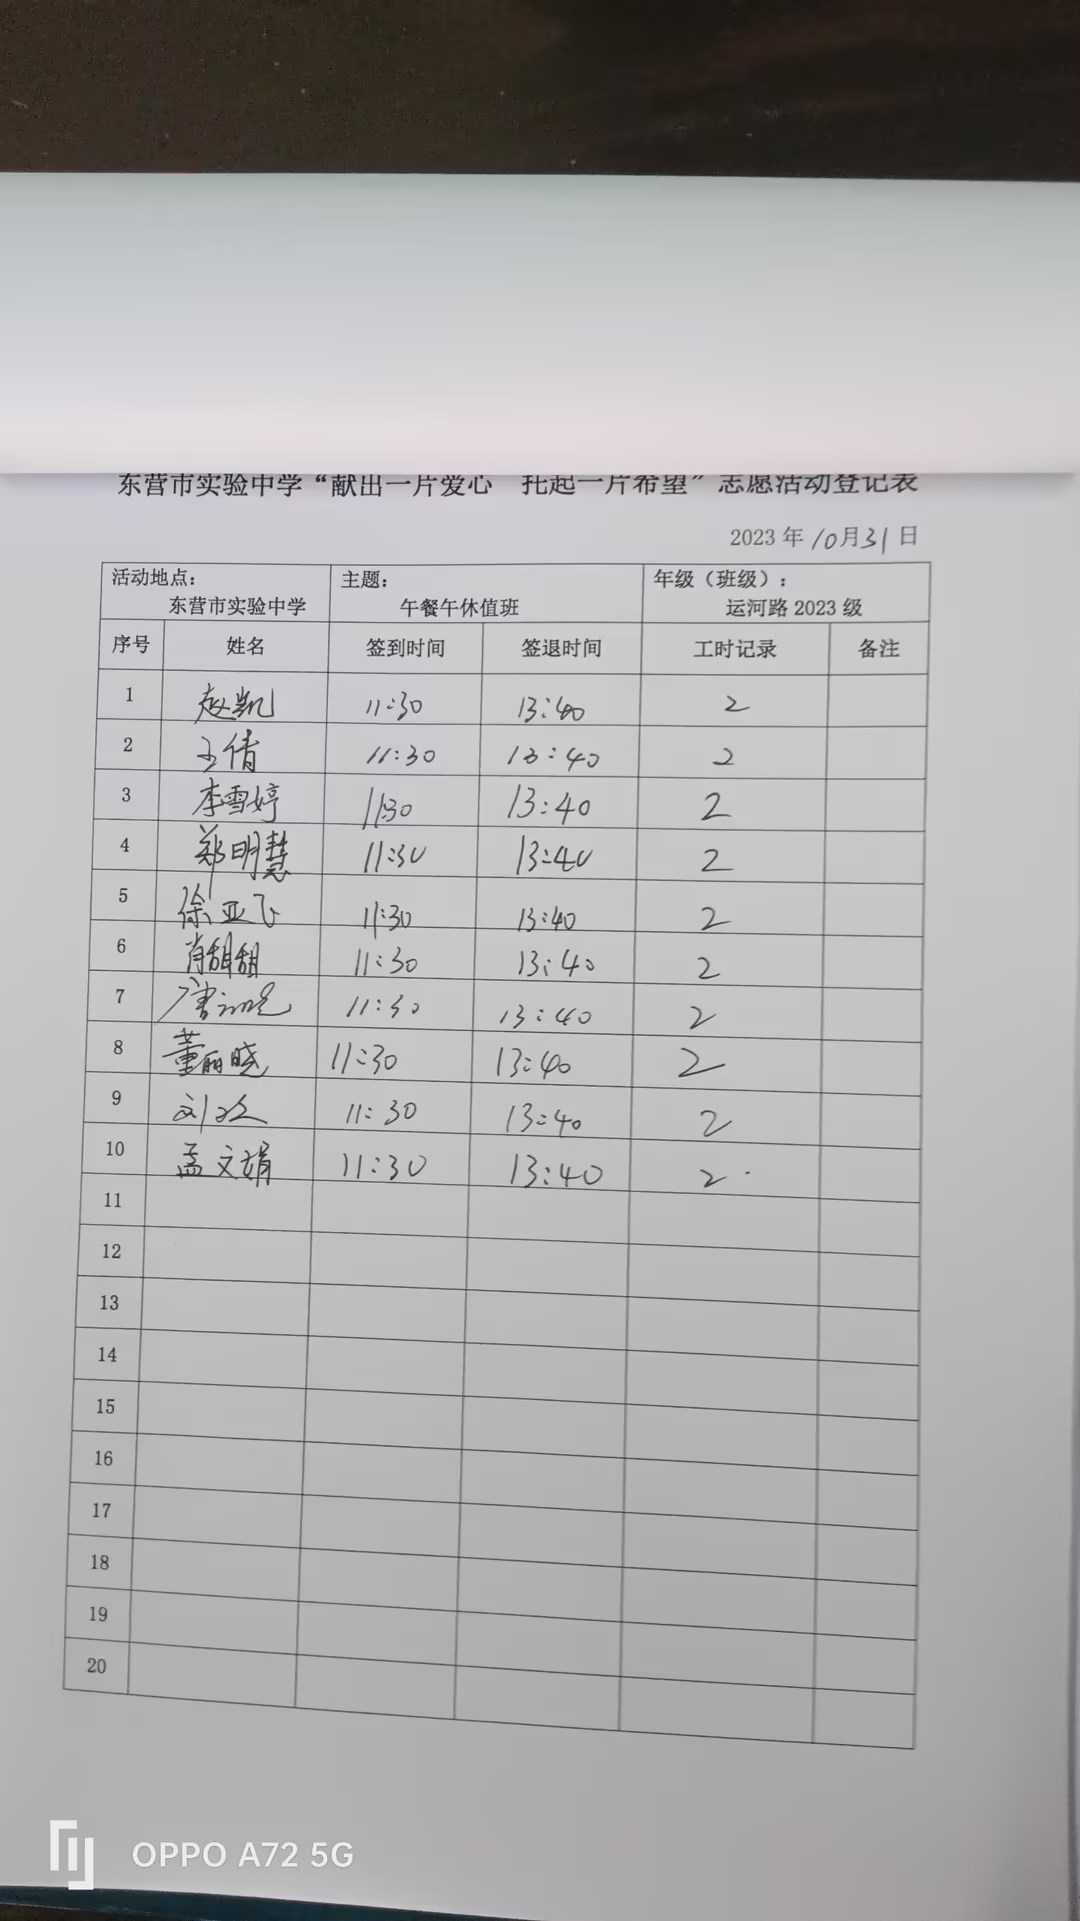 东营市实验中学“献出一片爱心 托起一片希望”志愿活动登记表
2023 年 10月31日
活动地点: 主题: 年级（班级）:
东营市实验中学 午餐午休值班 运河路 2023 级
序号 姓名 签到时间 签退时间 工时记录 备注
1 赵凯 11:30 13:40 2
2 王倩 11:30 13:40 2
3 李雪婷 11:30 13:40 2
4 郑明慧 11:30 13:40 2
5 徐亚飞 11:30 13:40 2
6 肖甜甜 11:30 13:40 2
7 唐 11:30 13:40 2
8 董丽晓 11:30 13:40 2
9 刘 11:30 13:40 2
10 孟文娟 11:30 13:40 2
11
12
13
14
15
16
17
18
19
20
OPPO A72 5G